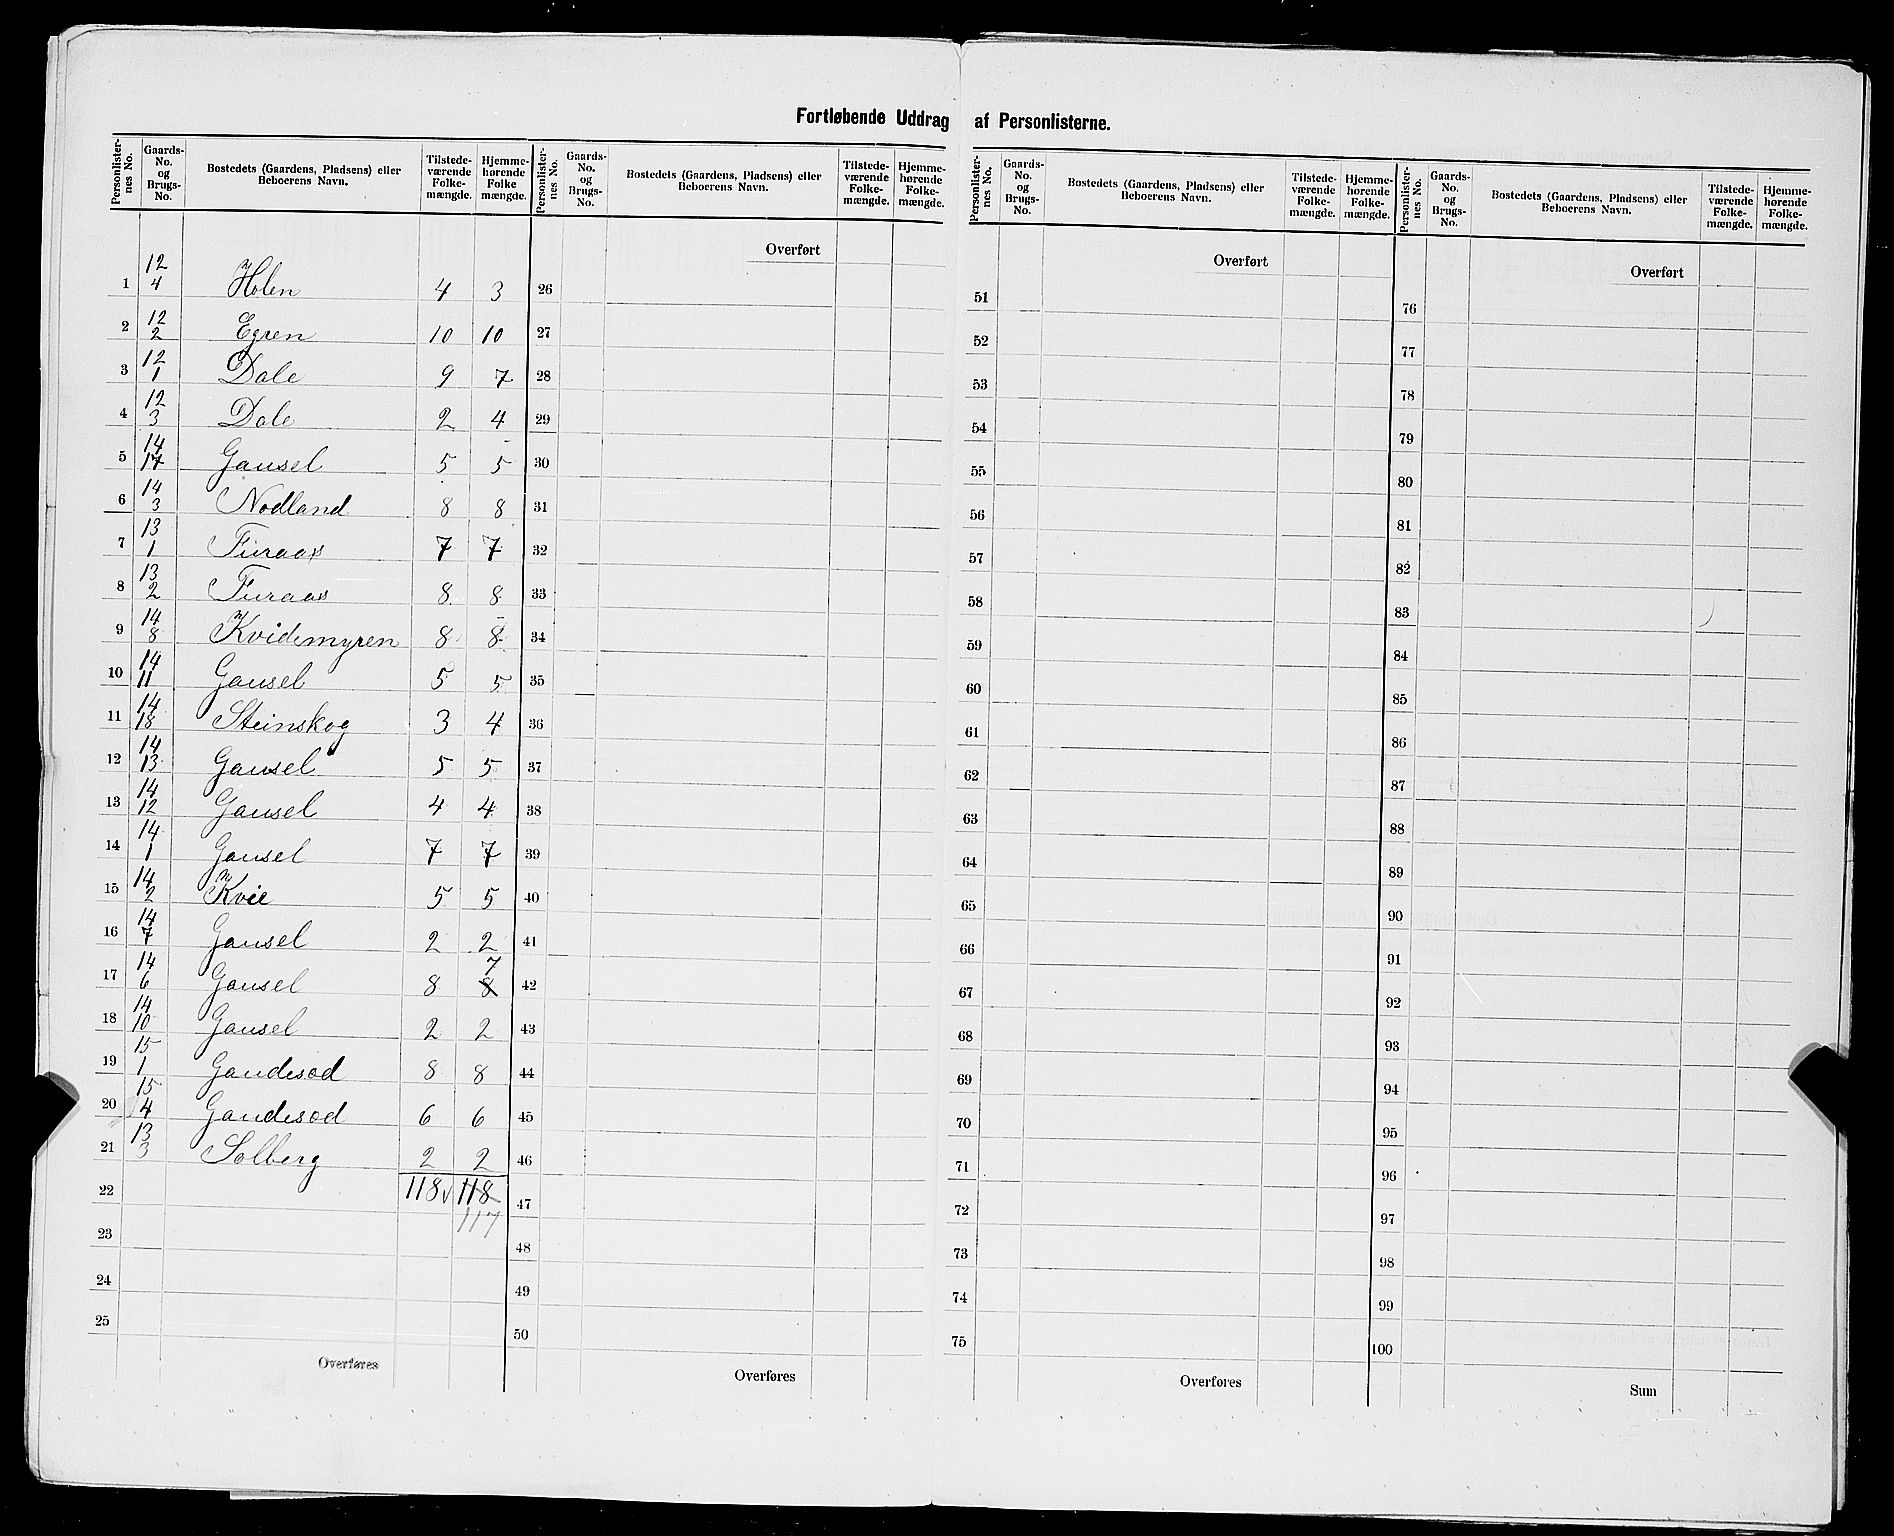 Fortløbende Uddrag af Personlisterne.
Personlister-nes No. Gaards-No. og Brugs-No. Bostedets (Gaardens, Pladsens) eller Beboerens Navn. Tilstede-værende Folke-mængde. Hjemme-hørende Folke mængde.
1 12/4 Holen 4 3
2 12/2 Egren 10 10
3 12/1 Dale 9 7
4 12/3 Dale 2 4
5 14/17 Gausel 5 5
6 14/3 Nodland 8 8
7 13/1 Furaas 7 7
8 13/2 Furaas 8 8
9 14/8 Kvidemyren 8 8
10 14/11 Gausel 5 5
11 14/18 Steinskog 3 4
12 14/13 Gausel 5 5
13 14/12 Gausel 4 4
14 14/1 Gausel 7 7
15 14/2 Kvie 5 5
16 14/7 Gausel 2 2
17 14/6 Gausel 8 8 7
18 14/10 Gausel 2 2
19 15/1 Gandesød 8 8
20 15/4 Gandesød 6 6
21 13/3 Solberg 2 2
22 118 118
117
23
24
25
Overføres
Personlister-nes No. Gaards-No. og Brugs-No. Bostedets (Gaardens, Pladsens) eller Beboerens Navn. Tilstede-værende Folke-mængde. Hjemme-hørende Folke-mængde.
Overført
26
27
28
29
30
31
32
33
34
35
36
37
38
39
40
41
42
43
44
45
46
47
48
49
50
Overføres
Personlister-nes No. Gaards-No. og Brugs-No. Bostedets (Gaardens, Pladsens) eller Beboerens Navn. Tilstede-værende Folke-mængde. Hjemme-hørende Folke-mængde.
Overført
51
52
53
54
55
56
57
58
59
60
61
62
63
64
65
66
67
68
69
70
71
72
73
74
75
Overføres
Personlister-nes No. Gaards-No. og Brugs-No. Bostedets (Gaardens, Pladsens) eller Beboerens Navn. Tilstede-værende Folke-mængde. Hjemme-hørende Folke-mængde.
Overført
76
77
78
79
80
81
82
83
84
85
86
87
88
89
90
91
92
93
94
95
96
97
98
99
100
Sum